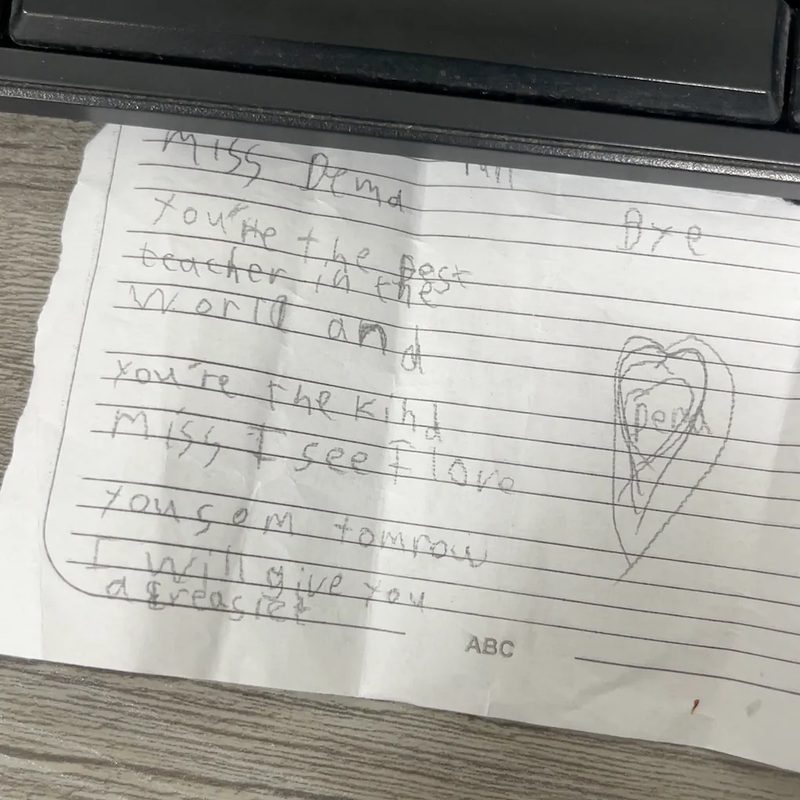 Miss Dema
You're the best
teacher in the
World and
you're the kind
Miss I see I love
you som tomrow
I will give you
Bye
Dema
ABC